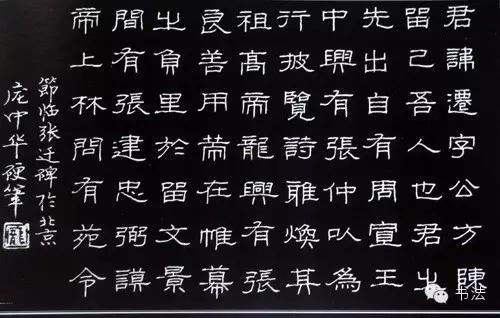 君諱遷字公方陳
留己吾人也君之
先出自有周宣王
中興有張仲以為
行披覽詩雅煥其
祖高帝龍興有張
良善用在帷幕
之負里於留文景
間有張建忠弼謨
帝上林問有苑令
節临张迁碑於北京
庞中华硬筆
书法